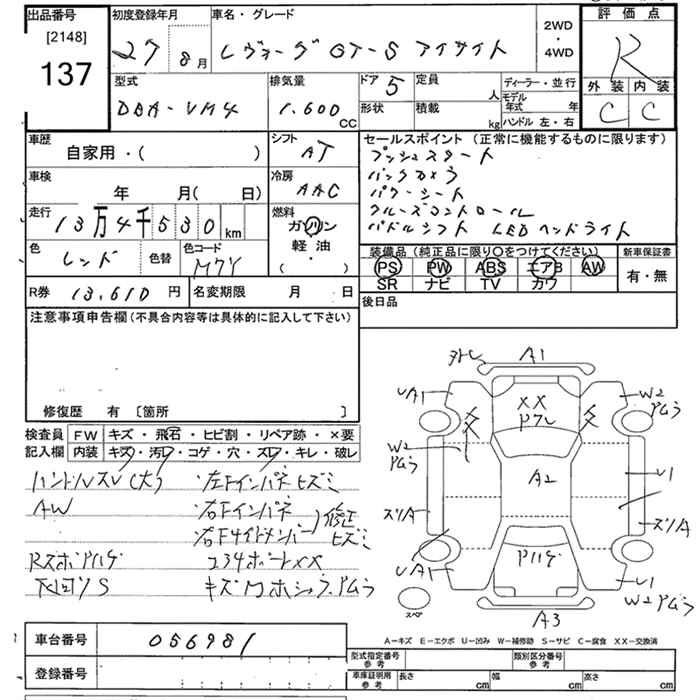 出品番号
[2148]
137
初度登録年月
27 8月
車名・グレード
レヴォーグ GT-S アイサイト
2WD
・
4WD
評価点
R
外装 内装
C C
型式
DBA-VM4
排気量
1.600 CC
ドア 5
形状
定員 人
積載 kg
ディーラー・並行
モデル年式 年
ハンドル 左・右
車歴
自家用・( )
シフト
AT
車検
年 月( 日)
冷房
AAC
走行
13万4千530km
燃料
ガソリン
軽油
( ・ )
色
レッド
色替
色コード
M7Y
セールスポイント(正常に機能するものに限ります)
プッシュスタート
バックカメラ
パワーシート
クルーズコントロール
パドルシフト LEDヘッドライト
装備品(純正品に限り○をつけてください)
PS PW ABS エアB AW
SR ナビ TV カワ
新車保証書
有・無
R券 13,610円
名変期限 月 日
後日品
注意事項申告欄(不具合内容等は具体的に記入して下さい)
修復歴 有 〔箇所 〕
検査員 FW キズ・飛石・ヒビ割・リペア跡・×要
記入欄 内装 キズ・汚レ・コゲ・穴・スレ・キレ・破レ
ハンドルスレ(大)
AW
左Fインパネヒズミ
右Fインパネ
右Fサイドメンバー 修正ヒズミ
234ポートXX
外トレ A1
UA1
W2
アムラ
XX
アムラ
W2
アムラ
A2
U1
スリA
スリA
UA1
U1
W2アムラ
A3
スペア
A-キズ E-エクボ U-凹み W-補修跡 S-サビ C-腐食 XX-交換済
車台番号
056981
登録番号
型式指定番号 参考
類別区分番号 参考
車庫証明用 参考
長さ cm
幅 cm
高さ cm